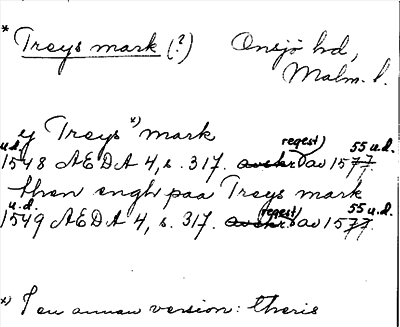 * Treys mark (?) Onsjö hd,
Malm. l.
y Treys x) mark
u.d. regest) 55 u.d.
1548 AEDA 4, s. 317. avskr. av 1577.
then engh paa Treys mark
u.d. regest) 55 u.d.
1549 AEDA 4, s. 317. avskr. av 1577.
x) I en annan version: theris